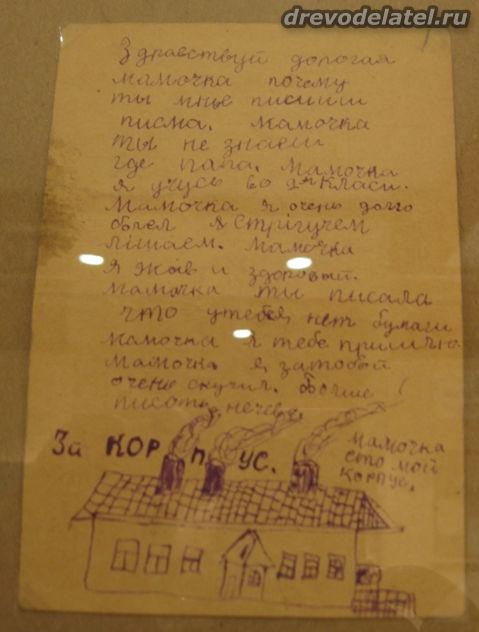 drevodelatel.ru
Здравствуй дорогая
мамочка почему
ты мнье писиши
писма. мамочка
ты не знаеш
где папа. Мамочка
я учусь во 2м класи.
Мамочка я очень долго
болел я стрігучем
лішаем. мамочка
я жыв и здоровый.
мамочка ты писала
что утебя, нет бумаги
мамочка я тебе пришлю.
мамочка я затобой
очень скучил. болше
писать нечево!
За КОРПУС.
мамочка
ето мой
корпус.